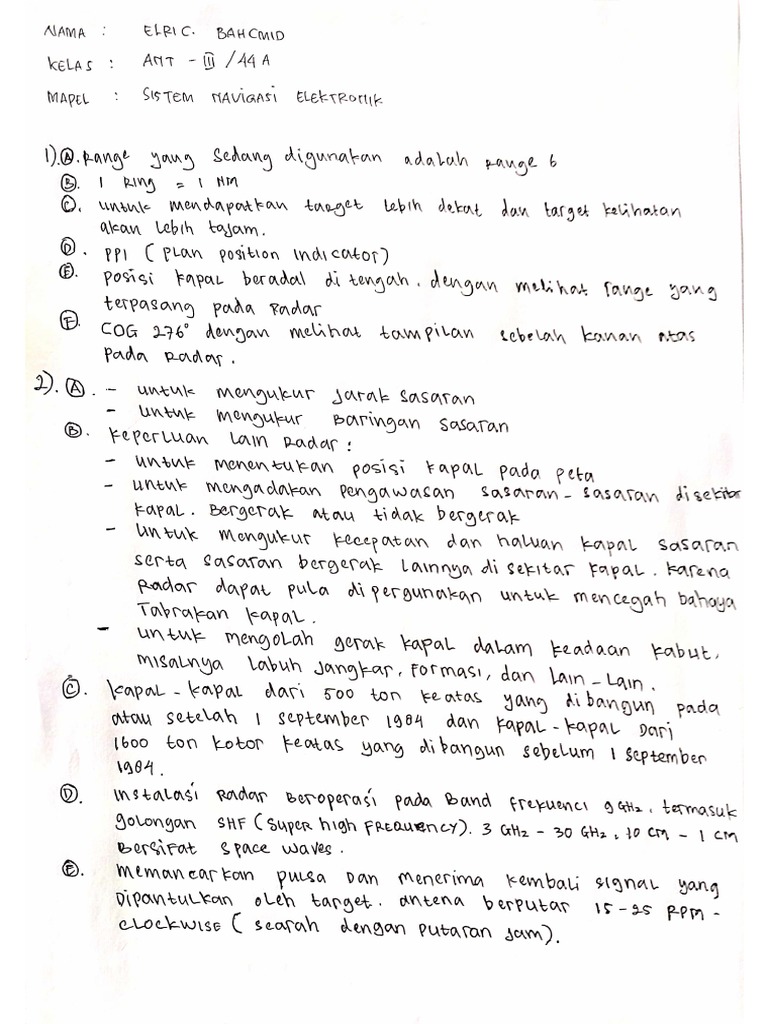 NAMA : ELRIC. BAHCMID
KELAS : ANT - III / 44 A
MAPEL : SISTEM NAVIGASI ELEKTRONIK
1). A. Range yang sedang digunakan adalah range 6
B. 1 Ring = 1 NM
C. untuk mendapatkan target lebih dekat dan target kelihatan
akan lebih tajam.
D. PPI (Plan position indicator)
E. posisi kapal beradal di tengah. dengan melihat range yang
terpasang pada Radar
F. COG 276° dengan melihat tampilan sebelah kanan atas
pada Radar.
2). A. - untuk mengukur jarak sasaran
- untuk mengukur Baringan sasaran
B. Keperluan lain Radar :
- untuk menentukan posisi kapal pada peta
- untuk mengadakan pengawasan sasaran - sasaran disekitar
kapal. Bergerak atau tidak bergerak
- untuk mengukur kecepatan dan haluan kapal sasaran
serta sasaran bergerak lainnya di sekitar kapal. karena
Radar dapat pula dipergunakan untuk mencegah bahaya
Tabrakan kapal.
- untuk mengolah gerak kapal dalam keadaan kabut,
misalnya labuh jangkar, formasi, dan lain - lain.
C. kapal - kapal dari 500 ton keatas yang dibangun pada
atau setelah 1 september 1984 dan kapal - kapal dari
1600 ton kotor keatas yang dibangun sebelum 1 september
1984.
D. instalasi Radar Beroperasi pada Band frekuenci 9 GHz, termasuk
golongan SHF (Super high FREQUENCY). 3 GHz - 30 GHz, 10 cm - 1 cm
Bersifat space waves.
E. memancarkan pulsa dan menerima kembali signal yang
Dipantulkan oleh target. antena berputar 15 - 25 RPM -
CLOCKWISE (searah dengan putaran jam).